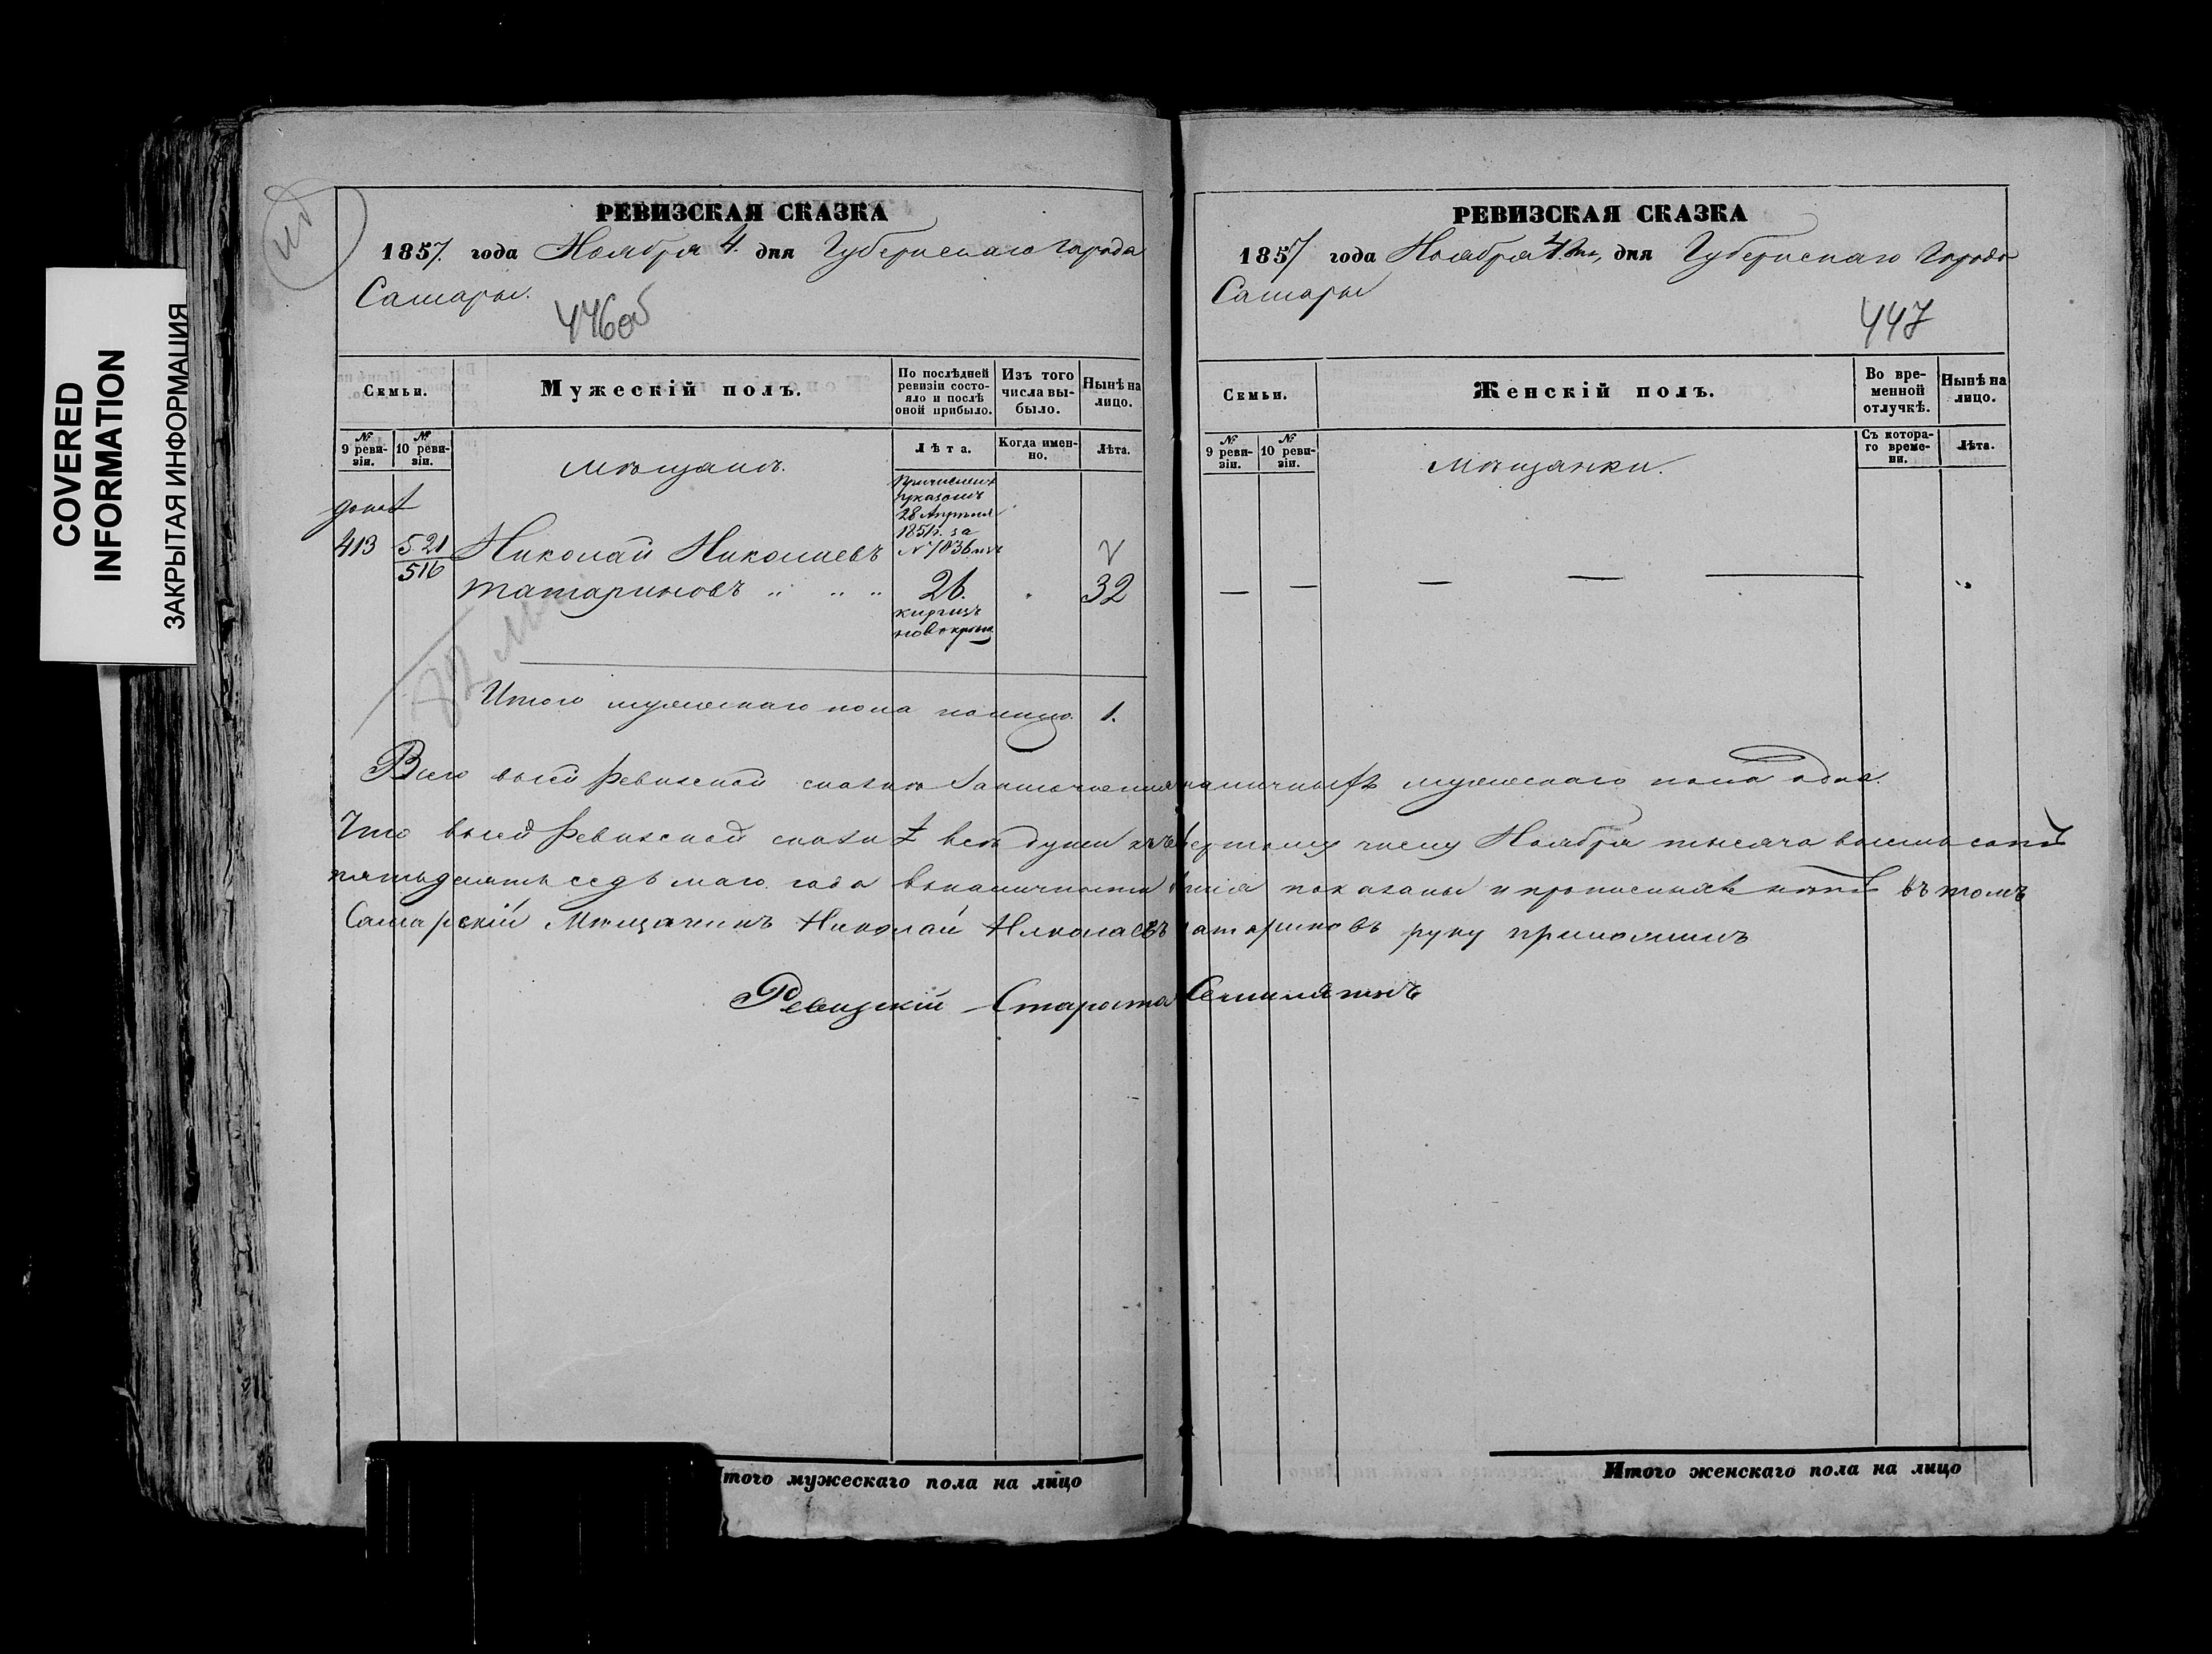 COVERED
INFORMATION
ЗАКРЫТАЯ ИНФОРМАЦИЯ
РЕВИЗСКАЯ СКАЗКА
1857. года Ноября 4. дня Губернскаго города
Самары.
446об
Семьи.
Мужескій полъ.
По послѣдней ревизіи состояло и послѣ оной прибыло.
Изъ того числа выбыло.
Нынѣ на лицо.
№ 9 ревизіи.
№ 10 ревизіи.
Мѣщанъ.
Лѣта.
Когда именно.
Лѣта.
Причисленъ
указомъ
28 Апрѣля
1851г. за
413 521 Николай Николаевъ
516
Татариновъ " " " 26. 32
киргизъ
новокрещ
Итого мужескаго пола налицо. 1.
Всего въ сей Ревизской сказкѣ заключается наличныхъ мужескаго пола одна.
Что въ сей Ревизской сказкѣ всѣ души къ четвертому числу Ноября тысяча восемь сотъ
пятьдесятъ седьмаго года въ наличности показаны и прописныхъ нѣтъ въ томъ
Самарскій Мѣщанинъ Николай Николаевъ Татариновъ руку приложилъ
Ревизскій Староста
Итого мужескаго пола на лицо
РЕВИЗСКАЯ СКАЗКА
1857 года Ноября 4 дня Губернскаго Города
Самары
447
Семьи.
Женскій полъ.
Во временной отлучкѣ.
Нынѣ на лицо.
№ 9 ревизіи.
№ 10 ревизіи.
Мѣщанки.
Съ котораго времени.
Лѣта.
Итого женскаго пола на лицо